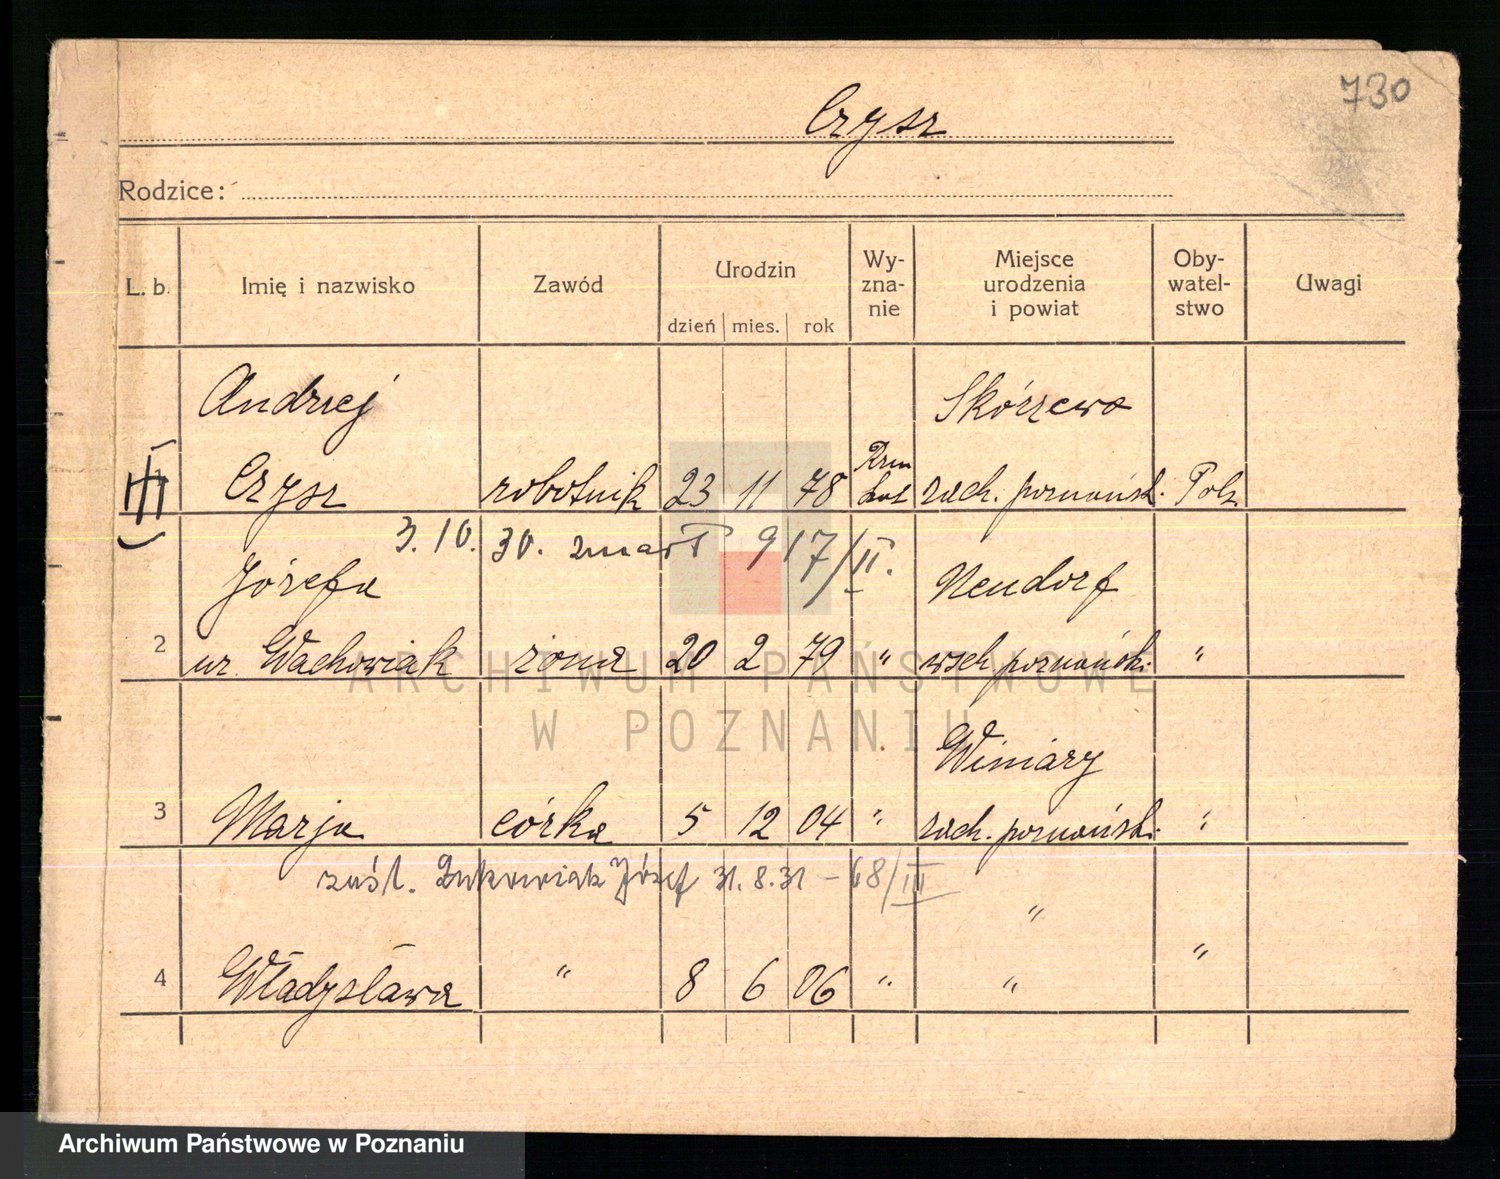 730
Czysz
Rodzice:
L. b. Imię i nazwisko Zawód Urodzin dzień mies. rok Wy-zna-nie Miejsce urodzenia i powiat Oby-watel-stwo Uwagi
Andrzej Skórzewo
Czysz robotnik 23 11 78 Rzm kat zach. poznańsk. Pols.
3. 10. 30. zmarł 917/II.
Józefa Neudorf
2 ur. Wachowiak żona 20 2 79 " wsch. poznańsk. "
Winiary
3 Marja córka 5 12 04 " zach. poznańsk. "
zaśl. Józef 31. 8. 31 - 68/III
"
4 Władysława " 8 6 06 " " "
ARCHIWUM PAŃSTWOWE
W POZNANIU
Archiwum Państwowe w Poznaniu